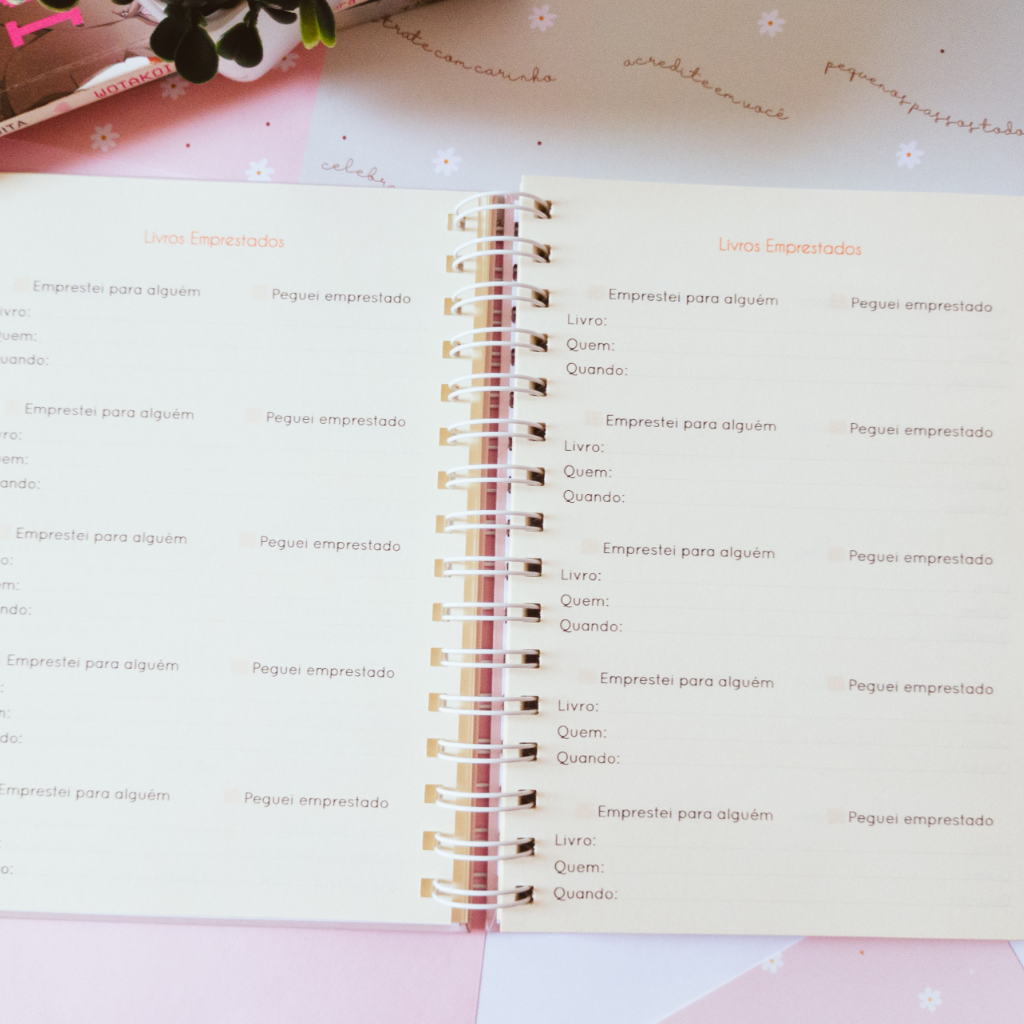 WOTAKOI
trate com carinho
acredite em você
pequenos passos todo
celebr
Livros Emprestados
Emprestei para alguém Peguei emprestado
ivro:
uem:
uando:
Emprestei para alguém Peguei emprestado
ro:
em:
ando:
Emprestei para alguém Peguei emprestado
o:
m:
ndo:
Emprestei para alguém Peguei emprestado
:
:
do:
Emprestei para alguém Peguei emprestado
:
o:
Livros Emprestados
Emprestei para alguém Peguei emprestado
Livro:
Quem:
Quando:
Emprestei para alguém Peguei emprestado
Livro:
Quem:
Quando:
Emprestei para alguém Peguei emprestado
Livro:
Quem:
Quando:
Emprestei para alguém Peguei emprestado
Livro:
Quem:
Quando:
Emprestei para alguém Peguei emprestado
Livro:
Quem:
Quando: